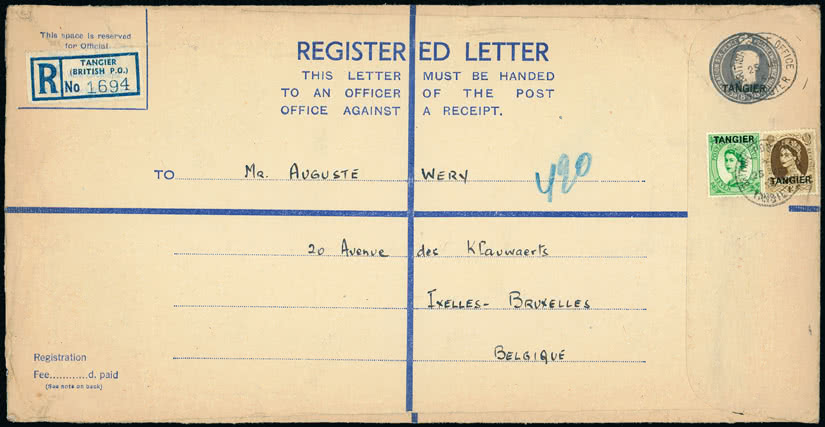 This space is reserved
for Official
TANGIER
(BRITISH P.O.)
R No 1694
REGISTERED LETTER
THIS LETTER MUST BE HANDED
TO AN OFFICER OF THE POST
OFFICE AGAINST A RECEIPT.
OFFICE
TANGIER
TANGIER
TANGIER
TANGIER
TO MR. AUGUSTE WERY
490
20 Avenue des Klauwaerts
IXELLES - BRUXELLES
BELGIQUE
Registration
Fee............d. paid
(See note on back)